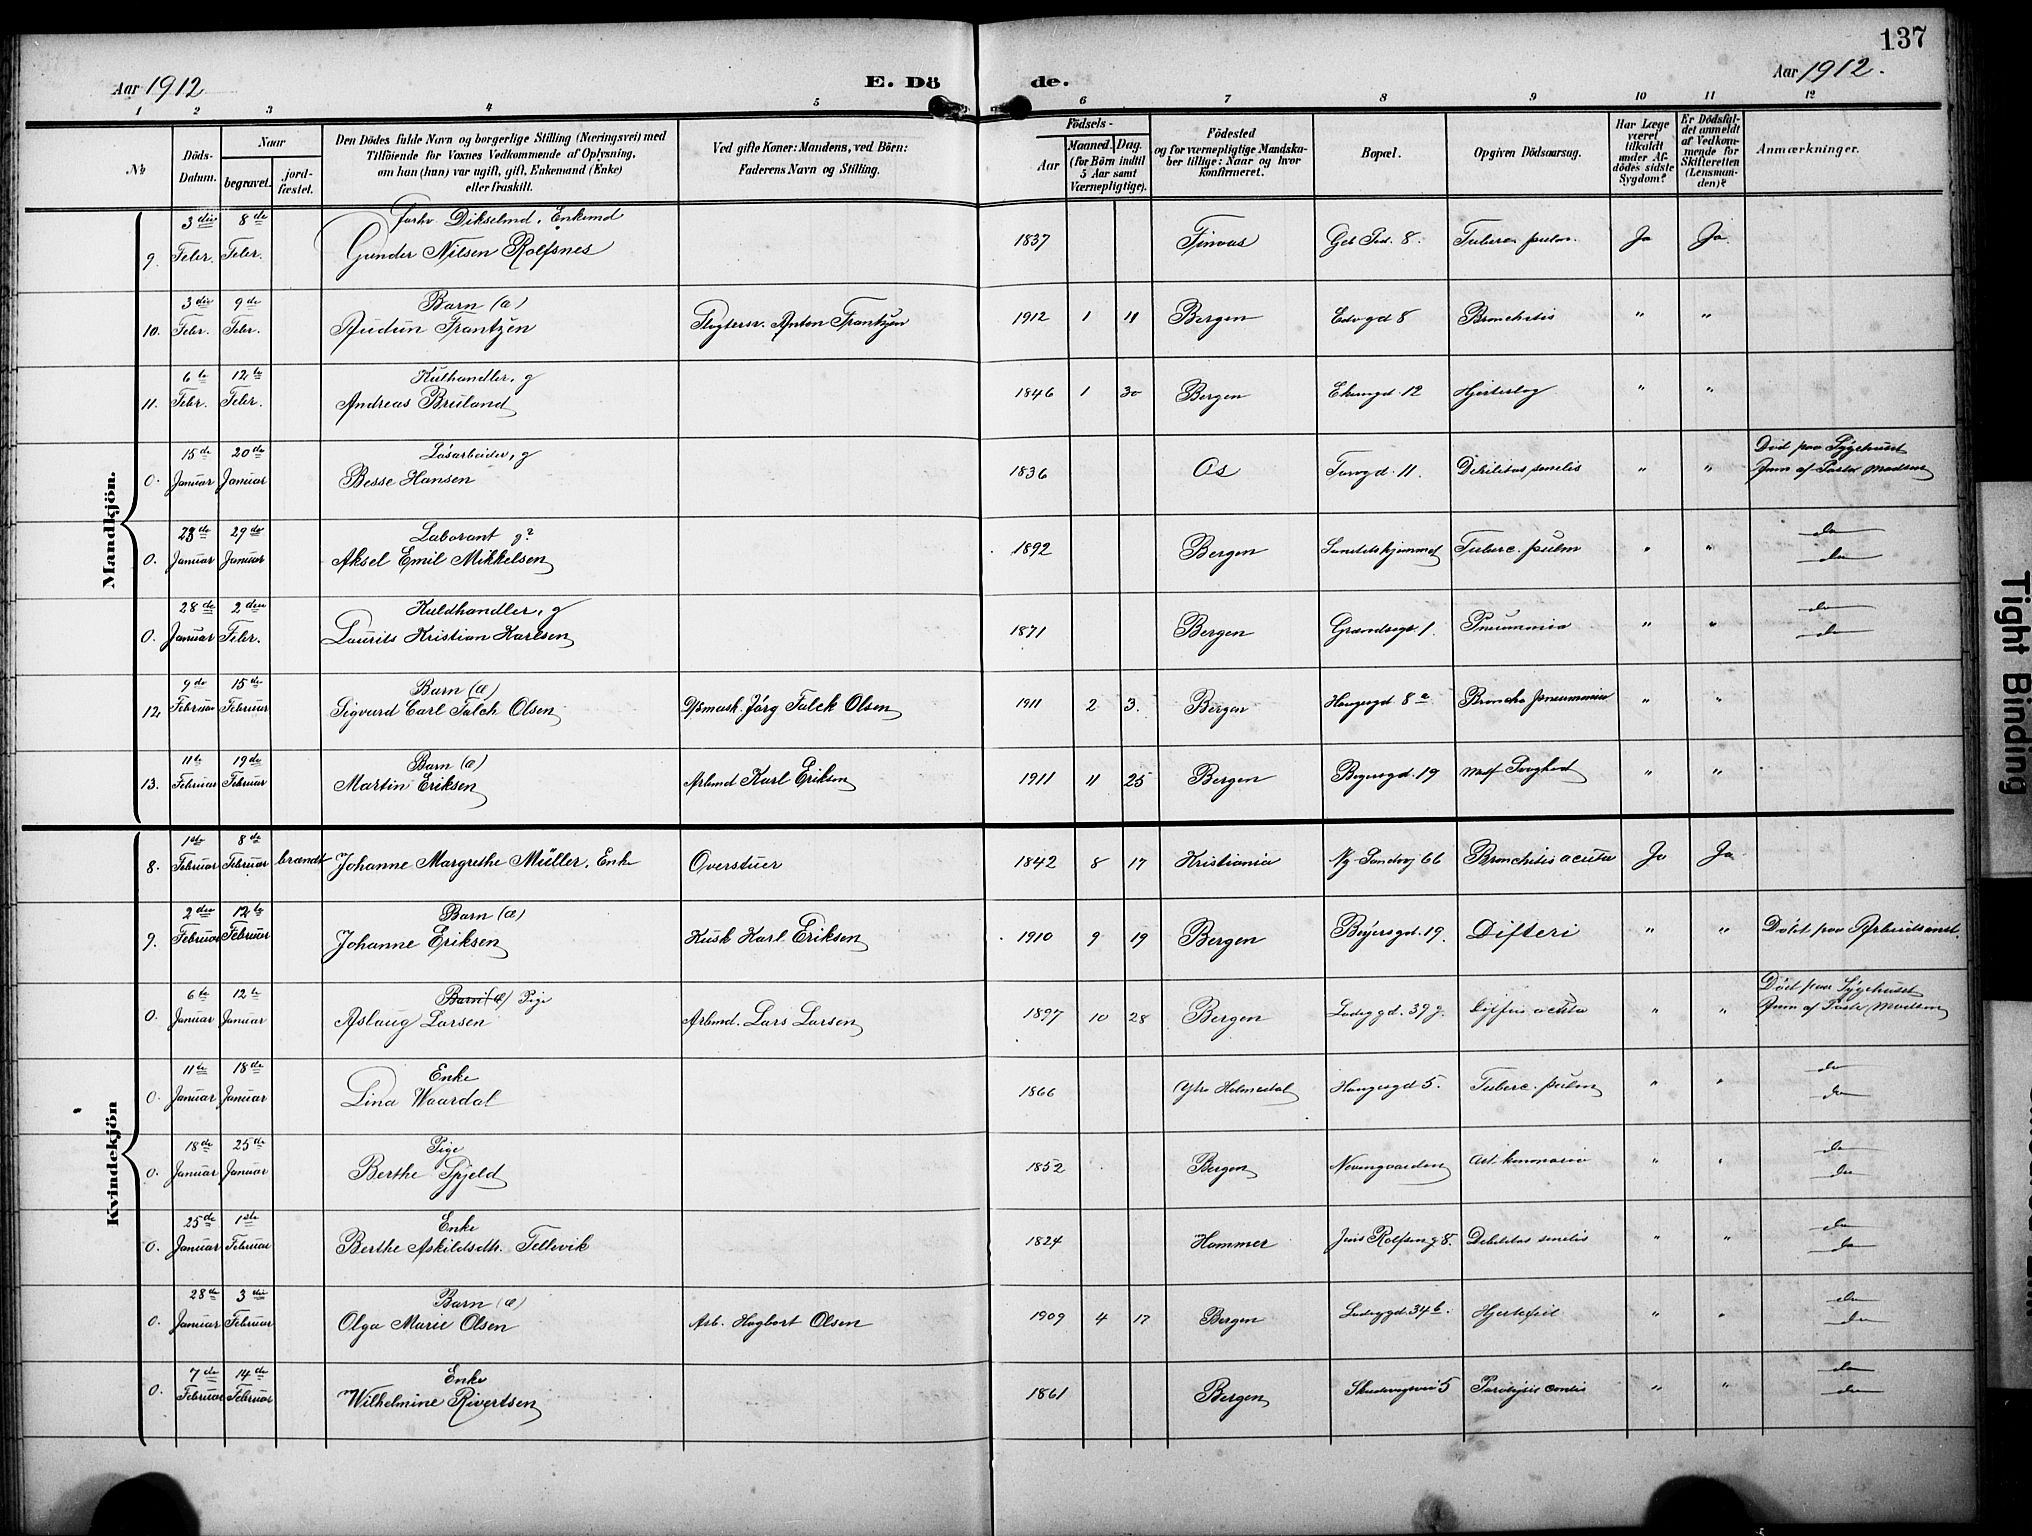 137
Aar 1912
E. Dö de.
Aar 1912.
1 2 3 4 5 6 7 8 9 10 11 12
No
Döds-Datum.
Naar
begravet.
jord-fæstet.
Den Dödes fulde Navn og borgerlige Stilling (Næringsvei) med
Tilföiende for Voxnes Vedkommende af Oplysning,
om han (hun) var ugift, gift, Enkemand (Enke)
eller fraskilt.
Ved gifte Koner: Mandens, ved Börn:
Faderens Navn og Stilling.
Födsels-
Aar
Maaned. Dag.
(for Börn indtil
5 Aar samt
Værnepligtige).
Födested
og for værnepligtige Mandska-
ber tillige: Naar og hvor
konfirmeret.
Bopæl.
Opgiven Dödsaarsag.
Har Læge
været
tilkaldt
under Af-
dödes sidste
Sygdom?
Er Dödsfal-
det anmeldt
af Vedkom-
mende for
Skifteretten
(Lensman-
den)?
Anmærkninger.
Mandkjön.
9. 3die Febr. 8de Febr. Forhv. Dikselmd, Enkemd
Gunder Nilsen Rolfsnes 1837 Finaas 8. Tuberc. pulm. Ja Ja
10. 3die Febr. 9de Febr. Barn (æ)
Audun Frantzen Anton Frantzen 1912 1 11 Bergen 8 Bronchitis " "
11. 6te Febr. 12te Febr. Kulhandler, g
Andreas Breiland 1846 1 30 Bergen 12 Hjerteslag " "
0. 15de Januar 20de Januar Løsarbeider, g
Besse Hansen 1836 Os Torvgd. 11. Debilitas senilis " " Død paa Sygehuset
Anm af Pastor Madsen
0. 23de Januar 29de Januar Laborant g?
Aksel Emil Mikkelsen 1892 Bergen Tuberc. pulm " " do
do
0. 28de Januar 2den Febr. Kuldhandler, g
Laurits Kristian Karlsen 1871 Bergen 1. Pneumonia " " do
do
12. 9de Februar 15de Februar Barn (æ)
Sigvard Carl Falch Olsen Jörg Falck Olsen 1911 2 3. Bergen Haugesgd 8a Broncho pneumonia " "
13. 11te Februar 19de Februar Barn (æ)
Martin Eriksen Arbmd Karl Eriksen 1911 11 25 Bergen Beyersgd. 19 Medf Svaghed " "
Kvindekjön
8. 1ste Februar 8de Februar brændt Johanne Margrethe Müller, Enke Overstuer 1842 8 17 Kristiania Ny-Sandvg 66 Bronchitis acuta Ja Ja
9. 2den Februar 12te Februar Barn (æ)
Johanne Eriksen Kusk Karl Eriksen 1910 9 19 Bergen Beyersgd. 19. Difteri " " Død paa Arbeidsanst.
0. 6te Januar 12te Januar Barn (æ) Pige
Aslaug Larsen Arbmd. Lars Larsen 1897 10 28 Bergen Ladegd. 39 acuta " " Død paa Sygehuset
Anm af Pastor Madsen
0. 11te Januar 18de Januar Enke
Lina Waardal 1866 Ytre Holmedal Haugesgd 5. Tuberc. pulm " " do
do
0. 18de Januar 25de Januar Pige
Berthe Spjeld 1852 Bergen Nevengaarden " " do
do
0. 25de Januar 1ste Februar Enke
Berthe Askildsdtr. Tellevik 1824 Hammer Jens Rolfsng 8. Debilitas senilis " " do
do
0. 28de Januar 3die Februar Barn (æ)
Olga Marie Olsen Arb. Hagbart Olsen 1909 4 17 Bergen Ladeggd. 34b. Hjertefeil " " do
do
0. 7de Februar 14de Februar Enke
Wilhelmine Rivertsen 1861 Bergen 5 Paralysis cordis " " do
do
Tight Binding